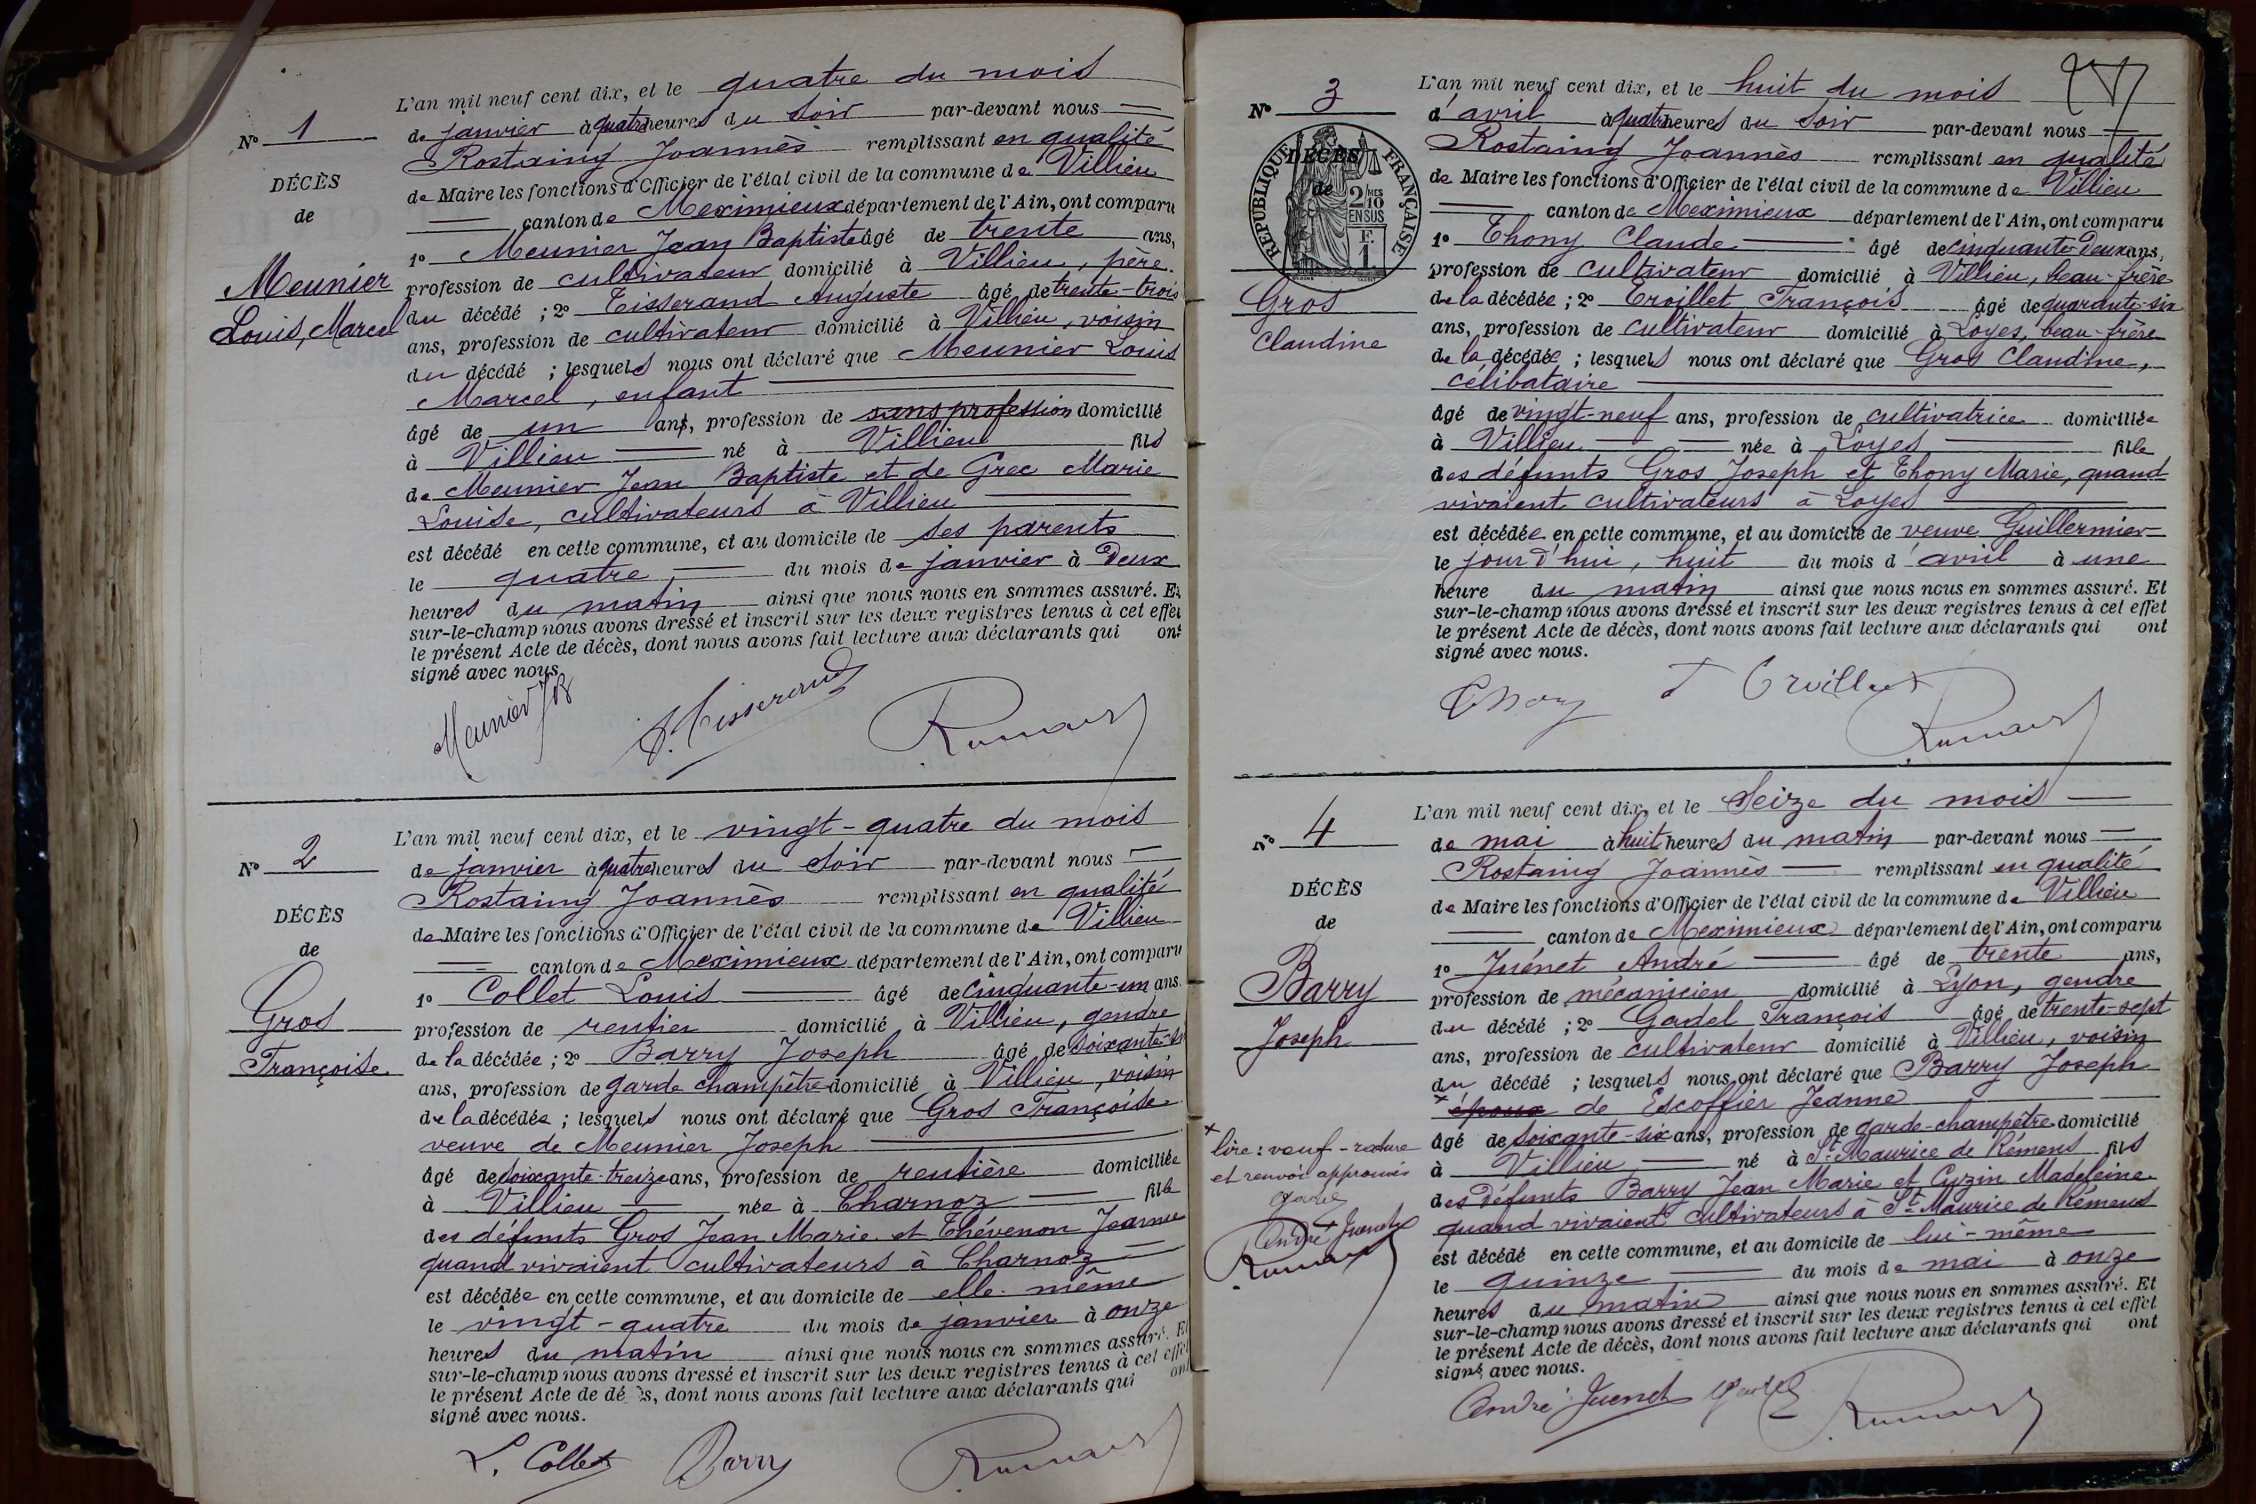 L'an mil neuf cent dix, et le quatre du mois
No 1
de janvier à quatre heures du soir par-devant nous
Rostaing Joannès remplissant en qualité
DÉCÈS
de Maire les fonctions d'Officier de l'état civil de la commune de Villieu
de
canton de Meximieux département de l'Ain, ont comparu
1o Meunier Jean Baptiste âgé de trente ans,
Meunier
profession de cultivateur domicilié à Villieu, père
Louis, Marcel
du décédé ; 2o Tisserand Auguste âgé de trente-trois
ans, profession de cultivateur domicilié à Villieu, voisin
du décédé ; lesquels nous ont déclaré que Meunier Louis
Marcel, enfant
âgé de un ans, profession de sans profession domicilié
à Villieu né à Villieu fils
de Meunier Jean Baptiste et de Grec Marie
Louise, cultivateurs à Villieu
est décédé en cette commune, et au domicile de ses parents
le quatre, du mois de janvier à deux
heures du matin ainsi que nous nous en sommes assuré. Et
sur-le-champ nous avons dressé et inscrit sur les deux registres tenus à cet effet
le présent Acte de décès, dont nous avons fait lecture aux déclarants qui ont
signé avec nous.
Meunier JB
A. Tisserand
L'an mil neuf cent dix, et le vingt-quatre du mois
No 2
de janvier à quatre heures du soir par-devant nous
Rostaing Joannès remplissant en qualité
DÉCÈS
de Maire les fonctions d'Officier de l'état civil de la commune de Villieu
de
canton de Meximieux département de l'Ain, ont comparu
1o Collet Louis âgé de cinquante-un ans
Gros
profession de rentier domicilié à Villieu, gendre
Françoise
de la décédée ; 2o Barry Joseph âgé de soixante-six
ans, profession de garde champêtre domicilié à Villieu, voisin
de la décédée ; lesquels nous ont déclaré que Gros Françoise
veuve de Meunier Joseph
âgé de soixante-treize ans, profession de rentière domiciliée
à Villieu née à Charnoz fille
des défunts Gros Jean Marie et Thévenon Jeanne
quand vivaient cultivateurs à Charnoz
est décédée en cette commune, et au domicile de elle-même
le vingt-quatre du mois de janvier à onze
heures du matin ainsi que nous nous en sommes assuré. Et
sur-le-champ nous avons dressé et inscrit sur les deux registres tenus à cet effet
le présent Acte de décès, dont nous avons fait lecture aux déclarants qui ont
signé avec nous.
L. Collet Barry
L'an mil neuf cent dix, et le huit du mois
No 3
d'avril à quatre heures du soir par-devant nous
Rostaing Joannès remplissant en qualité
DÉCÈS
de
RÉPUBLIQUE FRANÇAISE
2/10MES
EN SUS
F. 1
de Maire les fonctions d'Officier de l'état civil de la commune de Villieu
canton de Meximieux département de l'Ain, ont comparu
1o Thony Claude âgé de cinquante-deux ans,
profession de cultivateur domicilié à Villieu, beau-frère
Gros
de la décédée ; 2o Troillet François âgé de quarante-six
Claudine
ans, profession de cultivateur domicilié à Loyes, beau-frère
de la décédée ; lesquels nous ont déclaré que Gros Claudine,
célibataire
âgé de vingt-neuf ans, profession de cultivatrice domiciliée
à Villieu née à Loyes fille
des défunts Gros Joseph et Thony Marie, quand
vivaient cultivateurs à Loyes
est décédée en cette commune, et au domicile de veuve Guillermier
le jour d'hui, huit du mois d'avril à une
heure du matin ainsi que nous nous en sommes assuré. Et
sur-le-champ nous avons dressé et inscrit sur les deux registres tenus à cet effet
le présent Acte de décès, dont nous avons fait lecture aux déclarants qui ont
signé avec nous.
Thony
L'an mil neuf cent dix, et le Seize du mois
No 4
de mai à huit heures du matin par-devant nous
Rostaing Joannès remplissant en qualité
DÉCÈS
de Maire les fonctions d'Officier de l'état civil de la commune de Villieu
de
canton de Meximieux département de l'Ain, ont comparu
1o Juénet André âgé de trente ans,
Barry
profession de mécanicien domicilié à Lyon, gendre
Joseph
du décédé ; 2o Gadel François âgé de trente-sept
ans, profession de cultivateur domicilié à Villieu, voisin
du décédé ; lesquels nous ont déclaré que Barry Joseph
× époux de Escoffier Jeanne
× lire : veuf - rature
et renvoi approuvés
André Juenet
âgé de soixante-six ans, profession de garde-champêtre domicilié
à Villieu né à St Maurice de Rémens fils
des défunts Barry Jean Marie et Cyzin Madeleine
quand vivaient cultivateurs à St Maurice de Rémens
est décédé en cette commune, et au domicile de lui-même
le quinze du mois de mai à onze
heures du matin ainsi que nous nous en sommes assuré. Et
sur-le-champ nous avons dressé et inscrit sur les deux registres tenus à cet effet
le présent Acte de décès, dont nous avons fait lecture aux déclarants qui ont
signé avec nous.
André Juenet